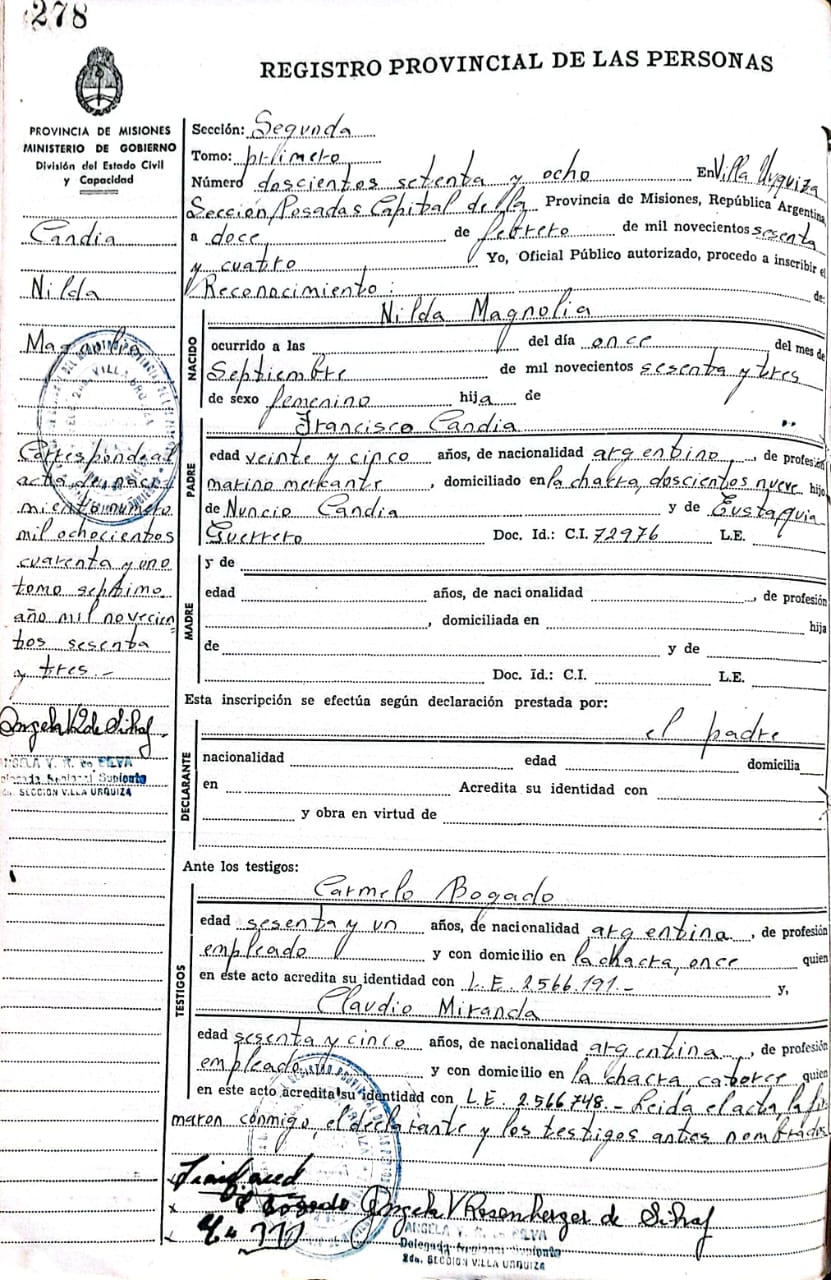 278
REGISTRO PROVINCIAL DE LAS PERSONAS
PROVINCIA DE MISIONES
MINISTERIO DE GOBIERNO
División del Estado Civil
y Capacidad
Candia
Nilda
Magnolia
Corresponde al
acta de naci
miento número
mil ochocientos
cuarenta y uno
tomo septimo
año mil novecien
tos sesenta
y tres.-
ANGELA V. R. de SILVA
Delegada Regional Suplente
2da. SECCION VILLA URQUIZA
Sección: Segunda
Tomo: primero
Número doscientos setenta y ocho En Villa Urquiza
Sección Posadas Capital de la Provincia de Misiones, República Argentina
a doce de febrero de mil novecientos sesenta
y cuatro Yo, Oficial Público autorizado, procedo a inscribir el
Reconocimiento: de:
NACIDO
Nilda Magnolia
ocurrido a las del día once del mes de
Septiembre de mil novecientos sesenta y tres
de sexo femenino hija de
PADRE
Francisco Candia
edad veinte y cinco años, de nacionalidad argentino, de profesión
marino merkante, domiciliado en la chacra, doscientos nueve hijo
de Nuncio Candia y de Eustaquia
Guerrero Doc. Id.: C.I. 72976 L.E.
MADRE
y de
edad años, de nacionalidad, de profesión
, domiciliada en hija
de y de
Doc. Id.: C.I. L.E.
Esta inscripción se efectúa según declaración prestada por:
DECLARANTE
el padre
nacionalidad edad domicilia
en Acredita su identidad con
y obra en virtud de
Ante los testigos:
TESTIGOS
Carmelo Bogado
edad sesenta y un años, de nacionalidad argentina, de profesión
empleado y con domicilio en la chacra, once quien
en este acto acredita su identidad con L.E. 2566.191.- y,
Claudio Miranda
edad sesenta y cinco años, de nacionalidad argentina, de profesión
empleado y con domicilio en la chacra catorce quien
en este acto acredita su identidad con L.E. 2.566.748.- Leida el acta, la fir
maron conmigo, el declarante y los testigos antes nombrados
Bogado Angela V Rosenberger de Silva
ANGELA V. R. de SILVA
Delegada Regional Suplente
2da. SECCION VILLA URQUIZA